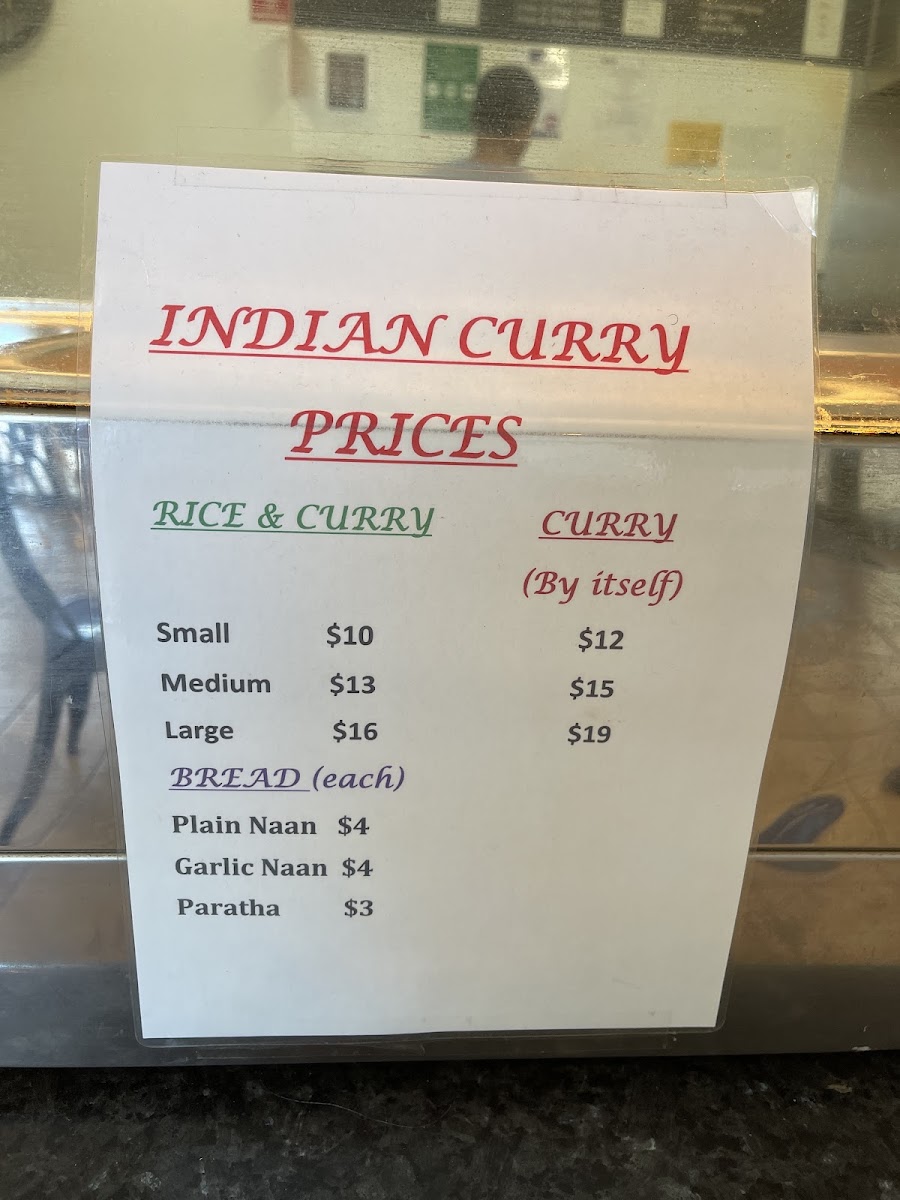 INDIAN CURRY
PRICES
RICE & CURRY CURRY
(By itself)
Small $10 $12
Medium $13 $15
Large $16 $19
BREAD (each)
Plain Naan $4
Garlic Naan $4
Paratha $3